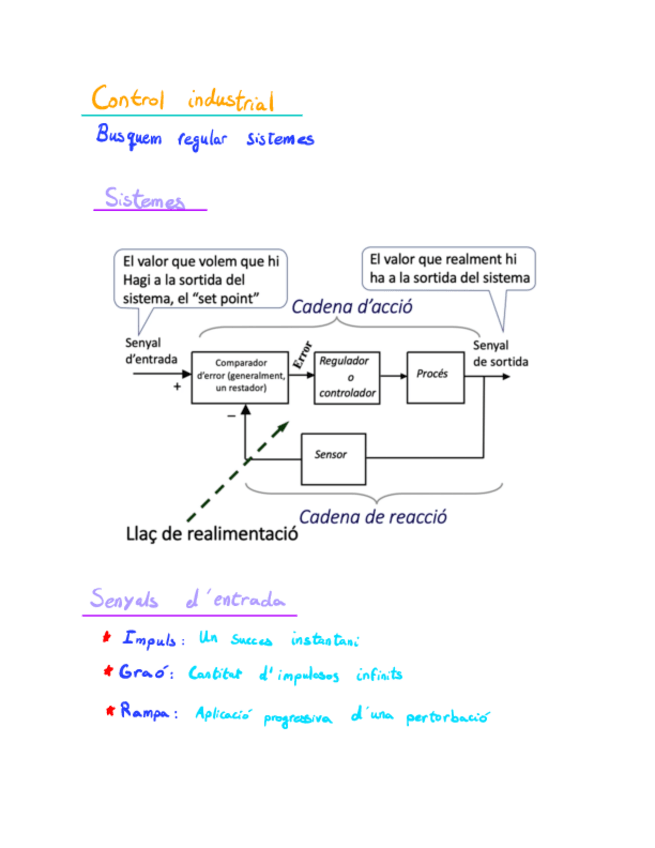 Control industrial
Busquem regular sistemes
Sistemes
El valor que volem que hi
Hagi a la sortida del
sistema, el “set point”
El valor que realment hi
ha a la sortida del sistema
Cadena d’acció
Senyal
d’entrada
+
Comparador
d’error (generalment,
un restador)
Error
Regulador
o
controlador
Procés
Senyal
de sortida
–
Sensor
Cadena de reacció
Llaç de realimentació
Senyals d'entrada
* Impuls: Un succes instantani
* Graó: Cantitut d'impulosos infinits
* Rampa: Aplicació progressiva d'una pertorbació